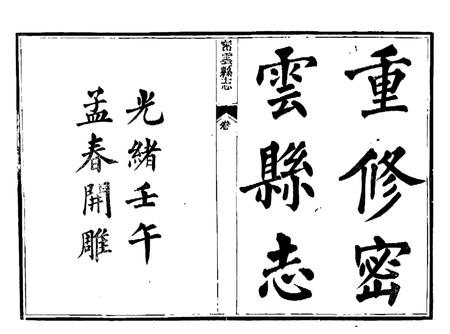 重修密
雲縣志
密雲縣志
卷
光緒壬午
孟春開雕